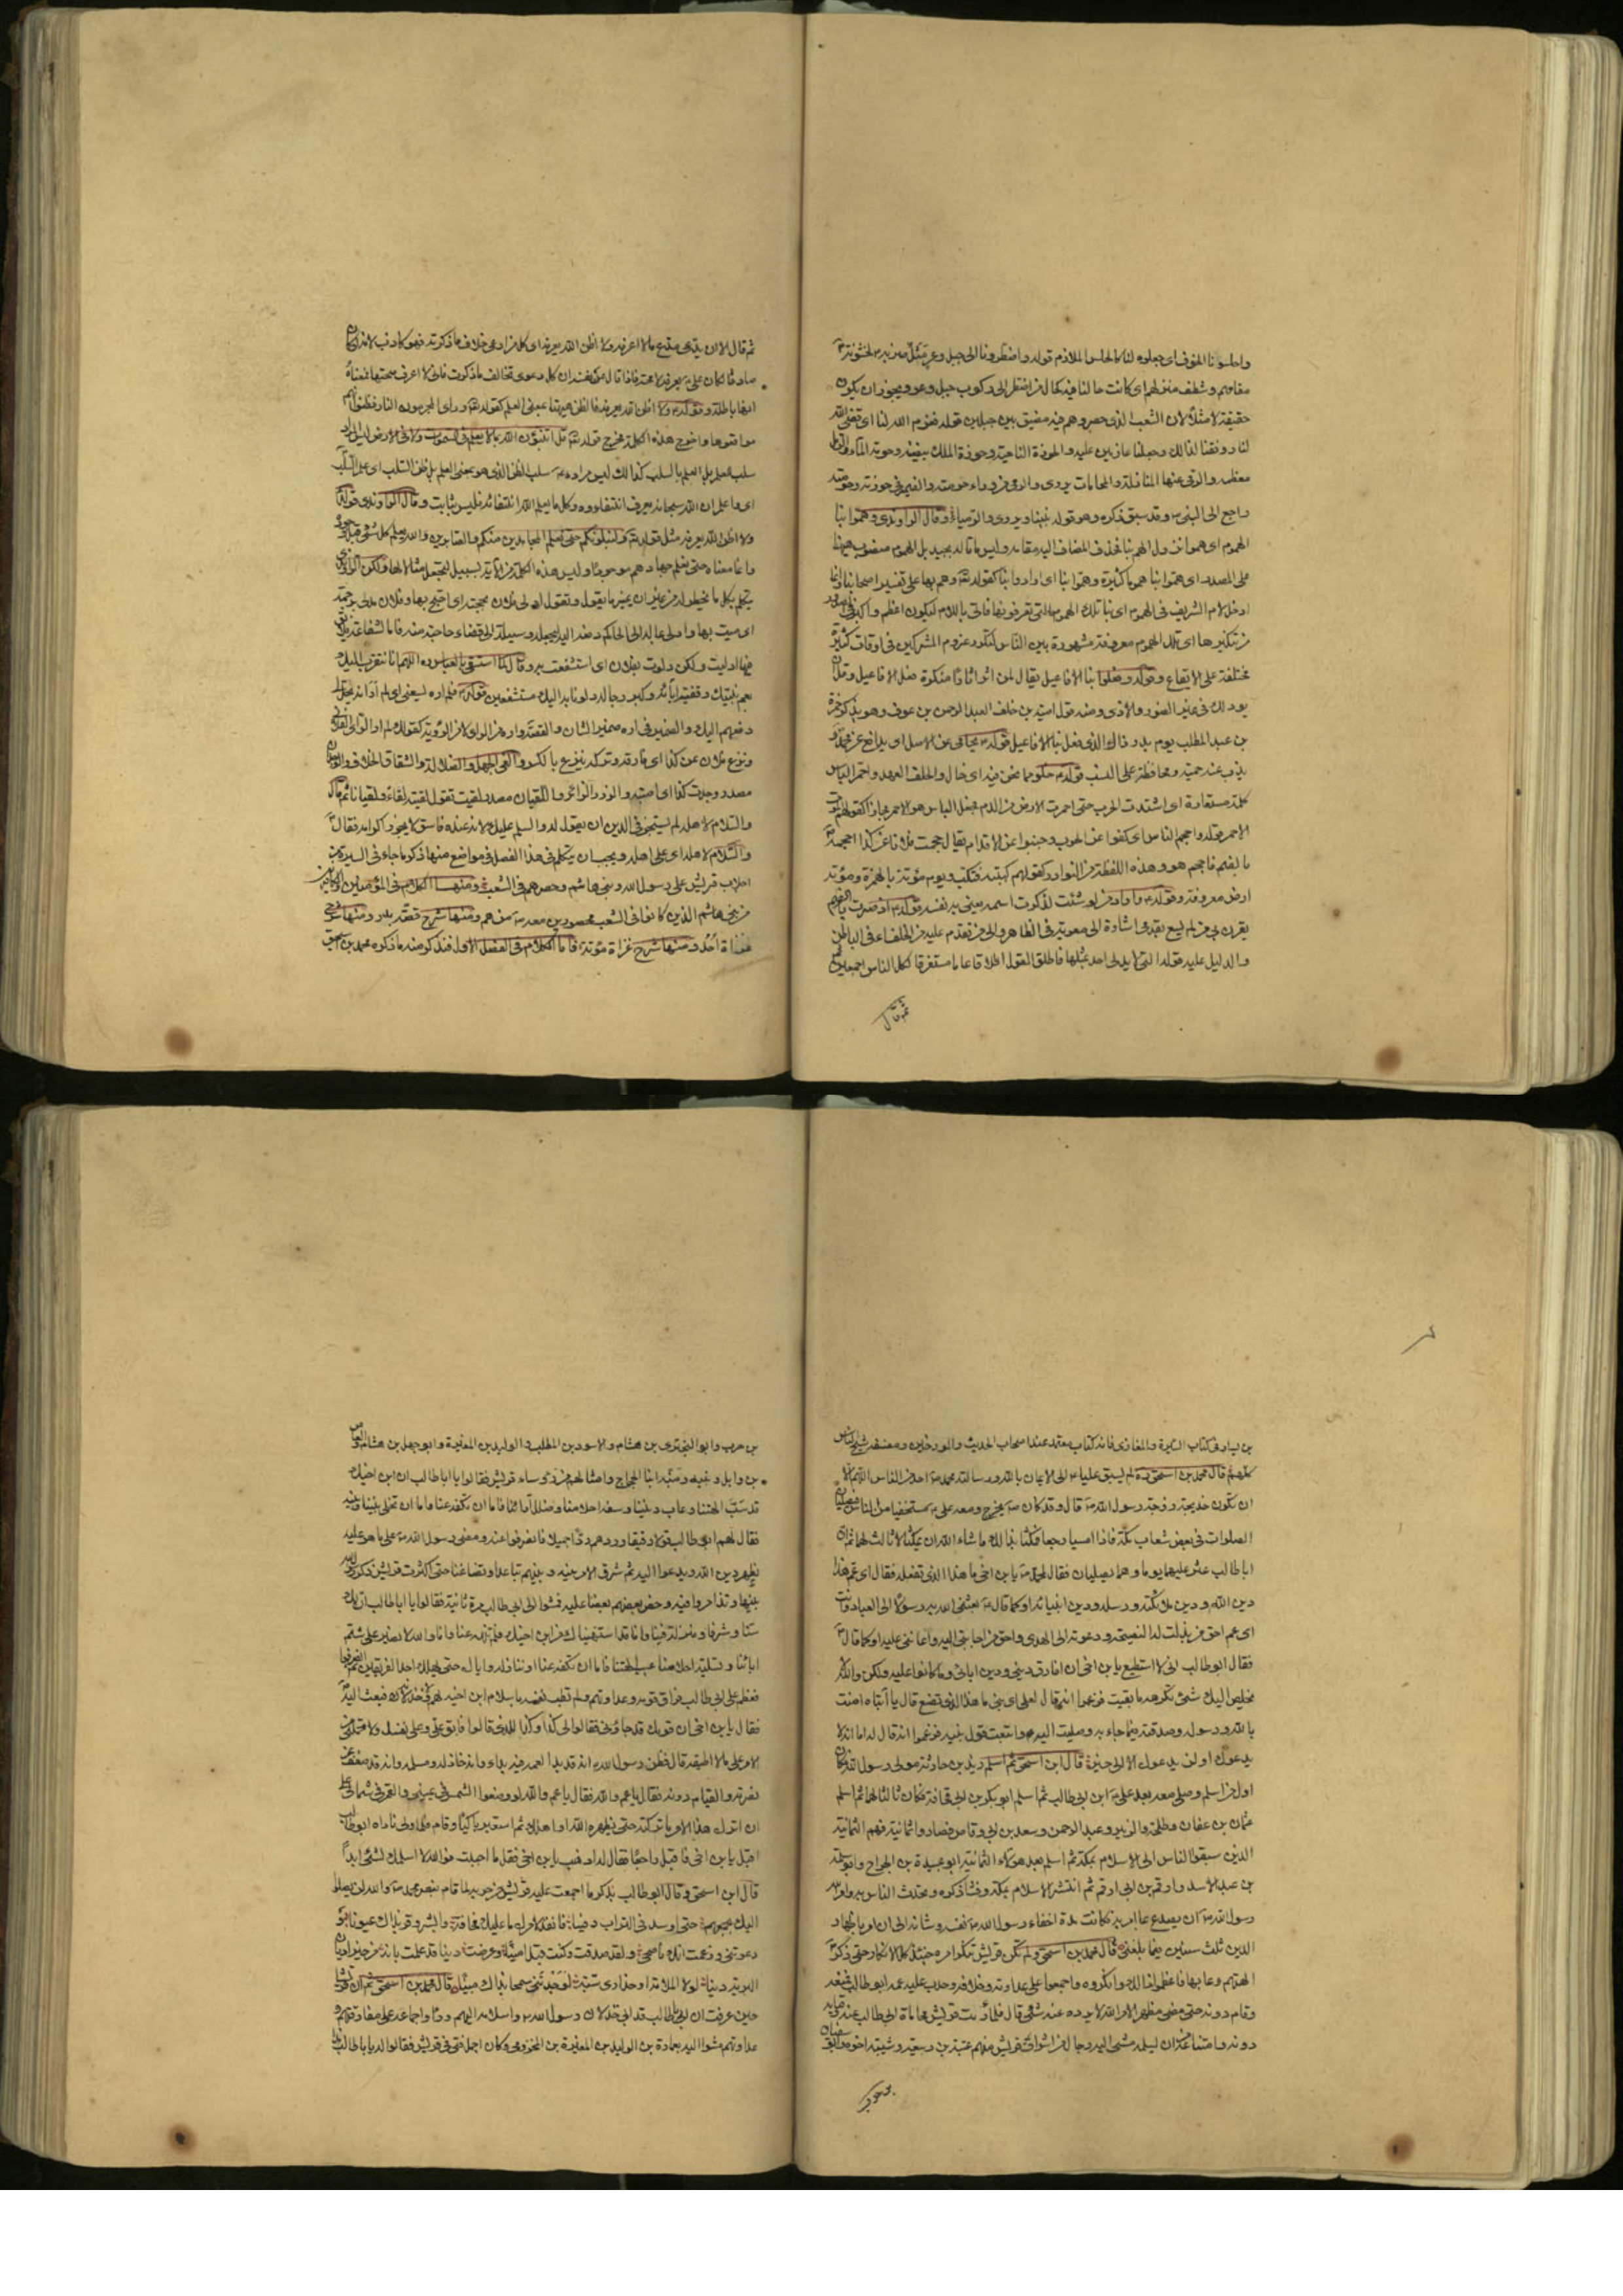 واحلسونا الخوف اى جعلوه لنا كالحلس الملازم قوله واضطرونا الى جبل وعر مثل ضربه لخشونة
مقامهم وشظف منزلهم اى كانت حالنا فيه كحال من اضطر الى ركوب جبل وعر ويجوز ان يكون
حقيقة لا مثلا لان الشعب الذى حصروهم فيه مضيق بين جبلين قوله فعزم الله لنا اى قضى الله
لنا ووفقنا لذلك وجعلنا عازمين عليه والحوزة الناحية وحوزة الملك بيضته وحومة الماء والرمل
معظمه والرمى عنها المناضلة والمحامات ويروى والرمى من وراء حومته والضمير فى حوزته وحومته
راجع الى النبى ص وقد سبق ذكره وهو قوله نبينا ويروى والرميا وقال الراوندى وهموا بنا
الهموم اى هموا نزول الهم بنا فحذف المضاف اليه مقامه وليس ما قاله بجيد بل الهموم منصوب هيهنا
على المصدر اى هموا بنا هموما كثيرة وهموا بنا اى ارادوا بنا كقوله تع وهم بها على تفسير اصحابنا وانما
ادخل لام التعريف فى الهموم اى بنا تلك الهموم التى تعرفونها فاتى باللام ليكون اعظم واكبر فى الصدور
من تنكيرها اى تلك الهموم معروفة مشهورة بين الناس لتكرر عزوم المشركين فى اوقات كثيرة
مختلفة على الايقاع وقوله وفعلوا بنا الافاعيل يقال لمن اثر اثارا منكرة فعل الافاعيل وقل ان
يقال ذلك فى غير الضرر والاذى ومنه قول امية بن خلف لعبد الرحمن بن عوف وهو يذكر حمزة
بن عبد المطلب يوم بدر ذاك الذى فعل بنا الافاعيل قوله يحامى عن الاصل اى يدافع عن محمد و
يذب عنه حمية ومحافظة على النسب قوله خلو مما نحن فيه اى خال والحلف العهد واحمر الباس
كلمة مستعارة اى اشتدت الحرب حتى احمرت الارض من الدم فجعل الباس هو الاحمر مجازا كقولهم الموت
الاحمر قوله واحجم الناس اى كفوا عن الحرب وجبنوا عن الاقدام يقال حجمت فلانا عن كذا احجمه
بالضم فاحجم هو وهذه اللفظة من النوادر كقولهم كببته فاكب ويوم مؤتة بالهمزة ومؤتة
ارض معروفة وقوله واراد من لو شئت لذكرت اسمه يعنى به نفسه قوله اذ صرت
يقرن بى من لم يسع بقدمى اشارة الى معوية فى الظاهر والى من تقدم عليه من الخلفاء فى الباطن
والدليل عليه قوله التى لا يدلى احد بمثلها فاطلق القول اطلاقا عاما مستغرقا لكل الناس اجمعين
ثم قال
ثم قال الا ان يدعى مدع ما لا اعرفه ولا اظن الله يعرفه اى كل من ادعى خلاف ما ذكرته فهو كاذب لانه لو كان
صادقا لكان على ع يعرفه لا محالة فاذا قال عن نفسه ان كل دعوى تخالف ما ذكرت فانى لا اعرف صحتها فمعناه
انها باطلة وقوله ولا اظن الله يعرفه فالظن هيهنا بمعنى العلم كقوله تع وراى المجرمون النار فظنوا انهم
مواقعوها واخرج هذه الكلمة مخرج قوله تع قل اتنبؤن الله بما لا يعلم فى السموات ولا فى الارض وليس المراد
سلب العلم بل العلم بالسلب كذلك ليس مراده ع سلب الظن الذى هو بمعنى العلم بل ظن السلب اى علم السلب
اى واعلم ان الله سبحانه يعرف انتفاءه وكل ما يعلم الله انتفائه فليس بثابت وقال الراوندى قوله
ولا اظن الله يعرفه مثل قوله تع ولنبلونكم حتى نعلم المجاهدين منكم والصابرين والله يعلم كل شى قبل وجوده
وانما معناه حتى نعلم جهادهم موجودا وليس هذه الكلمة من الاية بسبيل لتجعل مثالا لها ولكن الراوندى
يتكلم بكل ما يخطر له من غير ان يميز ما يقول وتقول ادلى فلان بحجته اى احتج بها وفلان مدل برحمه
اى يمت بها وادلى بماله الى الحاكم دفعه اليه ليجعله وسيلة الى قضاء حاجته منه فاما الشفاعة فلا يقال
فيها ادليت ولكن دلوت بفلان اى استشفعت به وقال لما استسقى بالعباس ره اللهم انا نتقرب اليك
بعم نبيك وقفية ابائه وكبر رجاله دلونا به اليك مستشفعين قوله فلم اره يسعنى اى لم ار انه يحل لى
دفعهم اليك والضمير فى اره ضمير الشان والقصة واره من الراى لا من الرؤية كقولك لم ار الراى الفلانى
ونزع فلان عن كذا اى فارقه وتركه ينزع بالكسر والغى الجهل والضلال والشقاق الخلاف والوجدان
مصدر وجدت كذا اى اصبته والزور الزائر واللقيان مصدر لقيت تقول لقيته لقاء ولقيانا ثم قال
والسلام لاهله لم يستجز فى الدين ان يقول له والسلم عليك لانه عنده فاسق لا يجوز اكرامه فقال
والسلام لاهله اى على اهله ويجب ان يتكلم فى هذا الفصل فى مواضع منها ذكر ما جاء فى السيرة من
اجلاب قريش على رسول الله وبنى هاشم وحصرهم فى الشعب ومنها الكلام فى المؤمنين والكافرين
من بنى هاشم الذين كانوا فى الشعب محصورين معه ص من هم ومنها شرح قصة بدر ومنها شرح
غزاة احد ومنها شرح غزاة مؤتة فاما الكلام فى الفصل الاول فنذكر منه ما ذكره محمد بن اسحق
بن يسار فى كتاب السيرة والمغازى فانه كتاب معتمد عند اصحاب الحديث والمورخين ومصنفه شيخ الناس
كلهم قال محمد بن اسحق ره لم يسبق عليا ع الى الايمان بالله ورسالة محمد ص احد من الناس اللهم الا
ان تكون خديجة زوجة رسول الله ص قال وقد كان ص يخرج ومعه على ع مستخفيا من الناس فيصليان
الصلوات فى بعض شعاب مكة فاذا امسيا رجعا فمكثا بذلك ما شاء الله ان يمكثا لا ثالث لهما ثم ان
ابا طالب عثر عليهما يوما وهما يصليان فقال لمحمد ص يابن اخى ما هذا الذى تفعله فقال اى عم هذا
دين الله ودين ملائكته ورسله ودين ابينا ابراهيم او كما قال ع بعثنى الله به رسولا الى العباد وانت
اى عم احق من بذلت له النصيحة ودعوته الى الهدى واحق من اجابنى اليه واعاننى عليه او كما قال
فقال ابو طالب انى لا استطيع يابن اخى ان افارق دينى ودين ابائى وما كانوا عليه ولكن والله لا
يخلص اليك شئ تكرهه ما بقيت فزعموا انه قال لعلى اى بنى ما هذا الذى تصنع قال يا ابتاه امنت
بالله ورسوله وصدقته فيما جاء به وصليت اليه واتبعت قول نبيه فزعموا انه قال له اما انه لا
يدعوك او لن يدعوك الا الى خير قال ابن اسحق ثم اسلم زيد بن حارثة مولى رسول الله فكان
اول من اسلم وصلى معه بعد على بن ابى طالب ثم اسلم ابو بكر بن ابى قحافة فكان ثالثا لهما ثم اسلم
عثمان بن عفان وطلحة والزبير وعبد الرحمن وسعد بن ابى وقاص فصاروا ثمانية فهم الثمانية
الذين سبقوا الناس الى الاسلام بمكة ثم اسلم بعد هؤلاء الثمانية ابو عبيدة بن الجراح وابو سلمة
بن عبد الاسد وارقم بن ابى ارقم ثم انتشر الاسلام بمكة وفشا ذكره وتحدث الناس به وامر الله
رسول الله ص ان يصدع بما امر به فكانت مدة اخفاء رسول الله ص نفسه وشانه الى ان امر باظهار
الدين ثلث سنين فيما بلغنى قال محمد بن اسحق ولم تكن قريش تنكر امره حينئذ كل الانكار حتى ذكر
الهتهم وعابها فاعظموا ذلك وانكروه واجمعوا على عداوته وخلافه وحدب عليه عمه ابو طالب فمنعه
وقام دونه حتى مضى مظهرا لامر الله لا يرده عنه شى قال فلما رات قريش محاماة ابى طالب عنه وقيامه
دونه وامتناعه من ان يسلمه مشى اليه رجال من اشراف قريش منهم عتبة بن ربيعة وشيبة اخوه وابو سفيان
بن حرب
بن حرب وابو البخترى بن هشام والاسود بن المطلب والوليد بن المغيرة وابو جهل بن هشام والعاص
بن وايل ونبيه ومنبه ابنا الحجاج وامثالهم من رؤساء قريش فقالوا يا ابا طالب ان ابن اخيك
قد سب الهتنا وعاب ديننا وسفه احلامنا وضلل آبائنا فاما ان تكفه عنا واما ان تخلى بيننا وبينه
فقال لهم ابو طالب قولا رفيقا وردهم ردا جميلا فانصرفوا عنه ومضى رسول الله ص على ما هو عليه
يظهر دين الله ويدعوا اليه ثم شرق الامر بينه وبينهم تباعدا وتضاغنا حتى اكثرت قريش ذكر رسول الله
بينها وتذامروا فيه وحض بعضهم بعضا عليه فمشوا الى ابى طالب مرة ثانية فقالوا يا ابا طالب ان لك
سنا وشرفا ومنزلة فينا وانا قد استنهيناك من ابن اخيك فلم تنهه عنا وانا والله لا نصبر على شتم
ابائنا وتسفيه احلامنا وعيب الهتنا فاما ان تكفه عنا او ننازله واياك حتى يهلك احد الفريقين ثم انصرفوا
فعظم على ابى طالب فراق قومه وعداوتهم ولم تطب نفسه باسلام ابن اخيه لهم وخذلانه فبعث اليه
فقال يابن اخى ان قومك قد جاؤنى فقالوا لى كذا وكذا للذى قالوا فابق على وعلى نفسك ولا تحملنى من
الامر على ما لا اطيقه قال فظن رسول الله ص انه قد بدا لعمه فيه بداء وانه خاذله ومسلمه وانه قد ضعف عن
نصرته والقيام دونه فقال يا عم والله لو وضعوا الشمس فى يمينى والقمر فى شمالى على
ان اترك هذا الامر ما تركته حتى يظهره الله او اهلك ثم استعبر باكيا وقام فلما ولى ناداه ابو طالب
اقبل يابن اخى فاقبل راجعا فقال له اذهب يابن اخى فقل ما احببت فوالله لا اسلمك لشئ ابدا
قال ابن اسحق وقال ابو طالب يذكر ما اجمعت عليه قريش من حربه لما قام بنصر محمد ص والله لن يصلوا
اليك بجمعهم حتى اوسد فى التراب دفينا فانفذ لامرك ما عليك مخافة وابشر وقر بذاك عيونا و
دعوتنى وزعمت انك ناصحى ولقد صدقت وكنت قبل امينا وعرضت دينا قد علمت بانه من خير اديان
البرية دينا لولا الملامة او حذارى سبة لوجدتنى سمحا بذاك مبينا قال محمد بن اسحق ثم ان قريشا
حين عرفت ان ابا طالب قد ابى خذلان رسول الله ص واسلامه اليهم وراوا اجماعه على مفارقتهم و
عداوتهم مشوا اليه بعمارة بن الوليد بن المغيرة المخزومى وكان اجمل فتى فى قريش فقالوا له يا ابا طالب